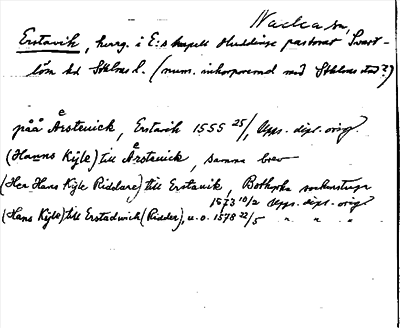 Nacka sn,
Erstavik, herrg. i E:s kapell Huddinge pastorat Svart-
lösa hd Sthlms l. (num. inkorporerad med Sthlms stad?)
påå Årsteuick, Erstavik 1555 25/, Upps. dipl. orig
(Hanns Kijle) till Årsteuick, samma brev
(Her Hans Kijle Riddare) till Erstauik, Bothyrka sockenstuga
1573 10/2 Upps. dipl. orig
(Hans Kijle) till Erstadwick (Ridder), u. o. 1578 22/5 " " "